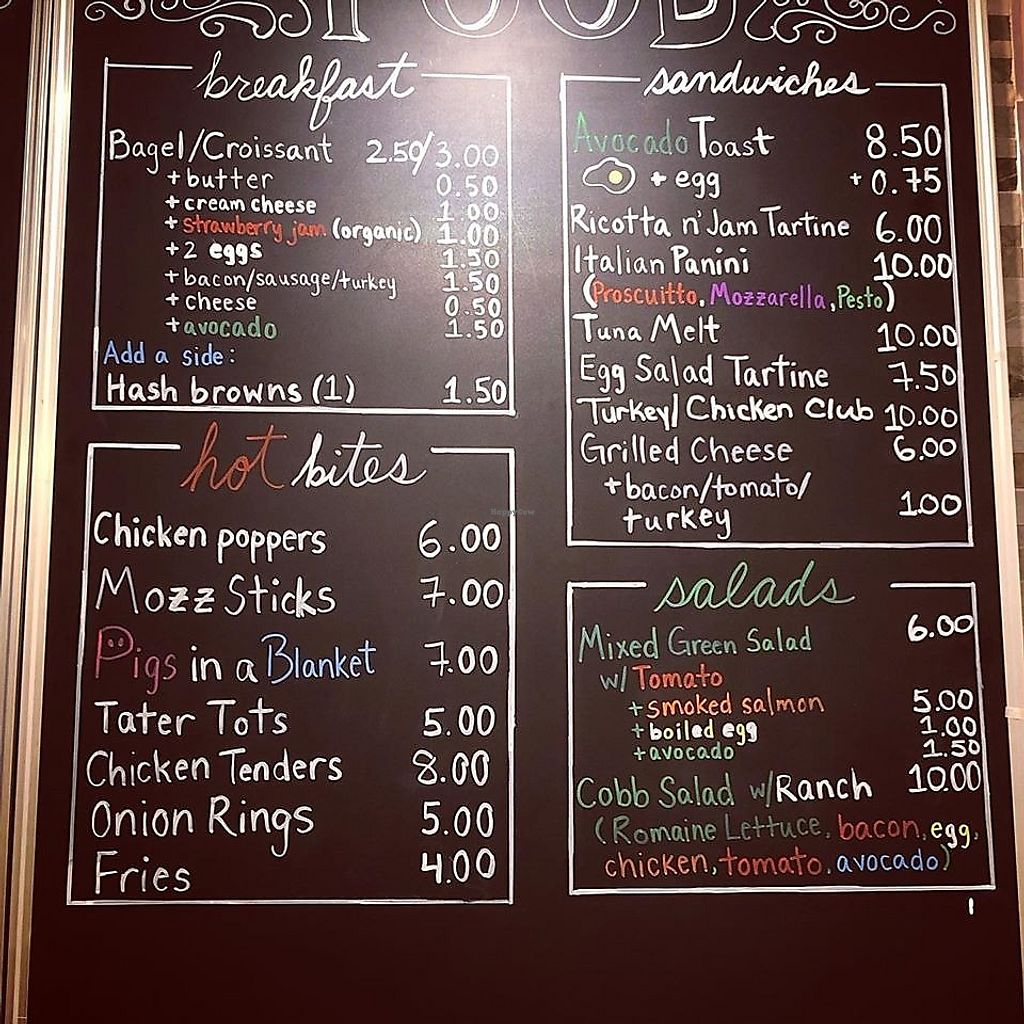 FOOD
breakfast
Bagel/Croissant 2.50/3.00
+butter 0.50
+cream cheese 1.00
+strawberry jam (organic) 1.00
+2 eggs 1.50
+bacon/sausage/turkey 1.50
+cheese 0.50
+avocado 1.50
Add a side:
Hash browns (1) 1.50
hot bites
Chicken poppers 6.00
Mozz Sticks 7.00
Pigs in a Blanket 7.00
Tater Tots 5.00
Chicken Tenders 8.00
Onion Rings 5.00
Fries 4.00
sandwiches
Avocado Toast 8.50
+ egg +0.75
Ricotta n' Jam Tartine 6.00
Italian Panini 10.00
(Proscuitto, Mozzarella, Pesto)
Tuna Melt 10.00
Egg Salad Tartine 7.50
Turkey/Chicken Club 10.00
Grilled Cheese 6.00
+bacon/tomato/
turkey 1.00
salads
Mixed Green Salad 6.00
w/ Tomato
+smoked salmon 5.00
+boiled egg 1.00
+avocado 1.50
Cobb Salad w/Ranch 10.00
(Romaine Lettuce, bacon, egg,
chicken, tomato, avocado)
HappyCow